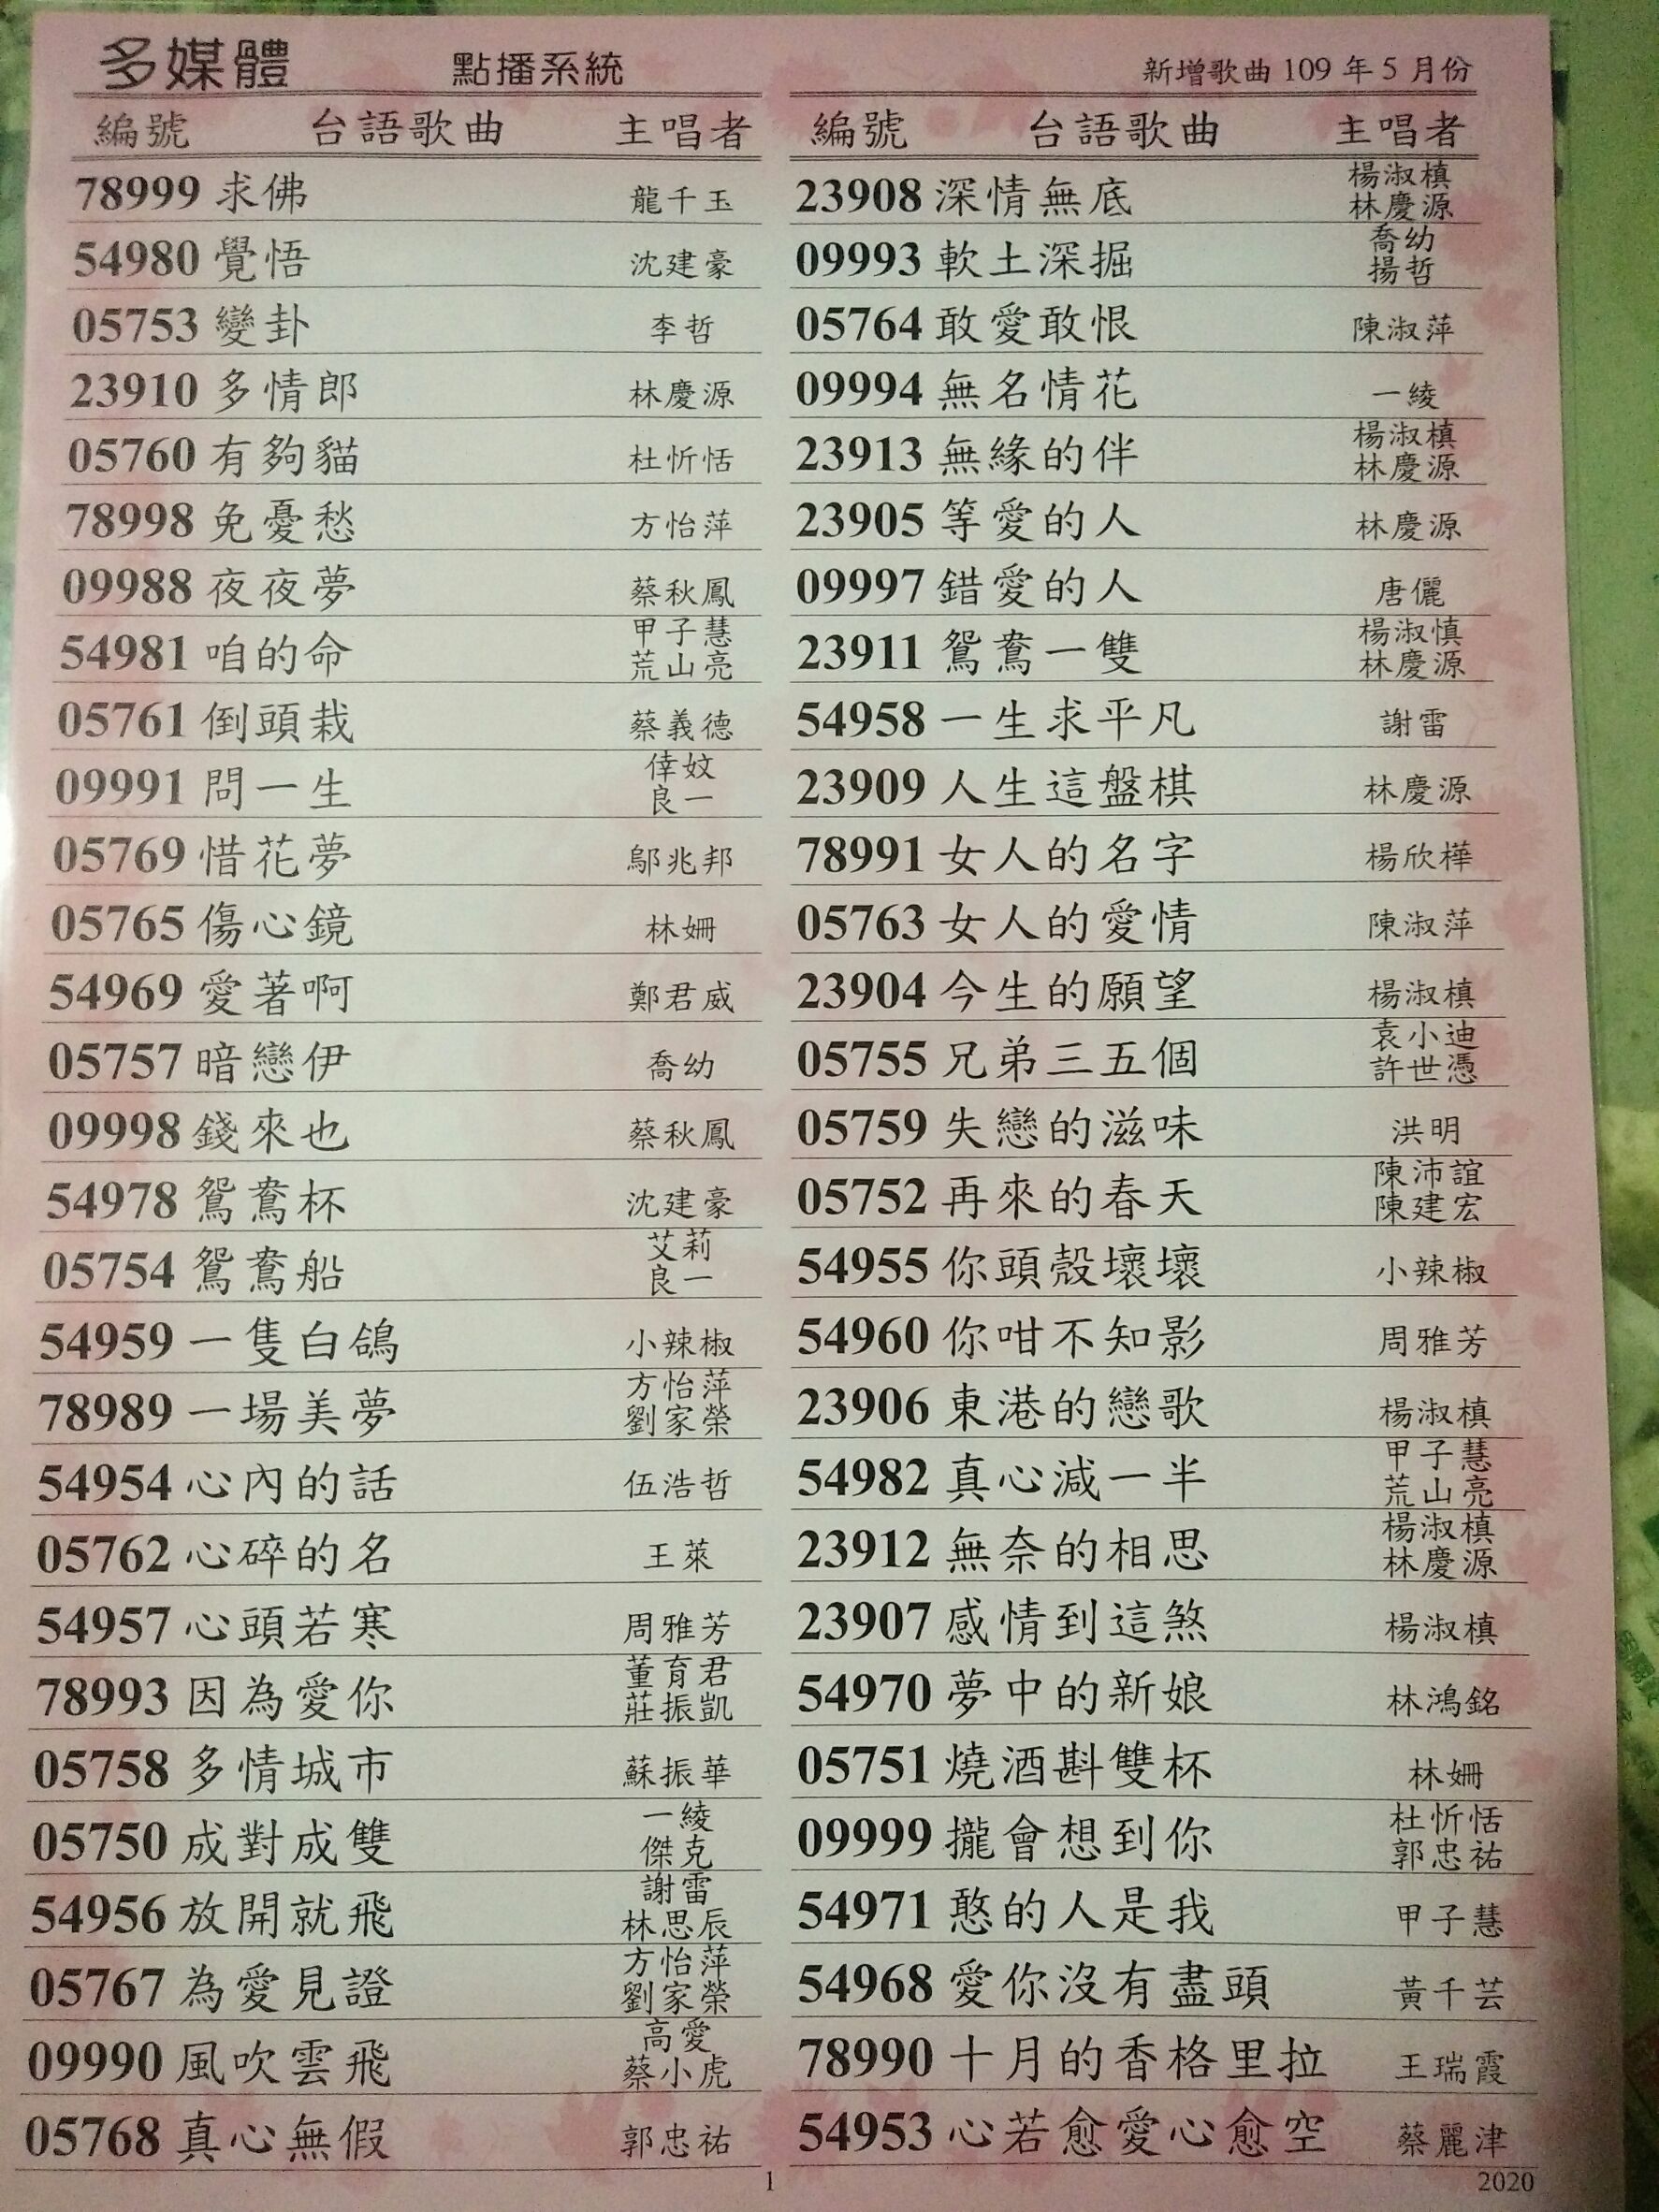 多媒體 點播系統
新增歌曲 109 年 5 月份
編號 台語歌曲 主唱者
78999 求佛 龍千玉
54980 覺悟 沈建豪
05753 變卦 李哲
23910 多情郎 林慶源
05760 有夠貓 杜忻恬
78998 免憂愁 方怡萍
09988 夜夜夢 蔡秋鳳
54981 咱的命 甲子慧 荒山亮
05761 倒頭栽 蔡義德
09991 問一生 倖妏 良一
05769 惜花夢 鄔兆邦
05765 傷心鏡 林姍
54969 愛著啊 鄭君威
05757 暗戀伊 喬幼
09998 錢來也 蔡秋鳳
54978 鴛鴦杯 沈建豪
05754 鴛鴦船 艾莉 良一
54959 一隻白鴿 小辣椒
78989 一場美夢 方怡萍 劉家榮
54954 心內的話 伍浩哲
05762 心碎的名 王萊
54957 心頭若寒 周雅芳
78993 因為愛你 董育君 莊振凱
05758 多情城市 蘇振華
05750 成對成雙 一綾 傑克
54956 放開就飛 謝雷 林思辰
05767 為愛見證 方怡萍 劉家榮
09990 風吹雲飛 高愛 蔡小虎
05768 真心無假 郭忠祐
編號 台語歌曲 主唱者
23908 深情無底 楊淑槙 林慶源
09993 軟土深掘 喬幼 揚哲
05764 敢愛敢恨 陳淑萍
09994 無名情花 一綾
23913 無緣的伴 楊淑槙 林慶源
23905 等愛的人 林慶源
09997 錯愛的人 唐儷
23911 鴛鴦一雙 楊淑慎 林慶源
54958 一生求平凡 謝雷
23909 人生這盤棋 林慶源
78991 女人的名字 楊欣樺
05763 女人的愛情 陳淑萍
23904 今生的願望 楊淑槙
05755 兄弟三五個 袁小迪 許世憑
05759 失戀的滋味 洪明
05752 再來的春天 陳沛誼 陳建宏
54955 你頭殼壞壞 小辣椒
54960 你咁不知影 周雅芳
23906 東港的戀歌 楊淑槙
54982 真心減一半 甲子慧 荒山亮
23912 無奈的相思 楊淑槙 林慶源
23907 感情到這煞 楊淑槙
54970 夢中的新娘 林鴻銘
05751 燒酒斟雙杯 林姍
09999 攏會想到你 杜忻恬 郭忠祐
54971 憨的人是我 甲子慧
54968 愛你沒有盡頭 黃千芸
78990 十月的香格里拉 王瑞霞
54953 心若愈愛心愈空 蔡麗津
1
2020